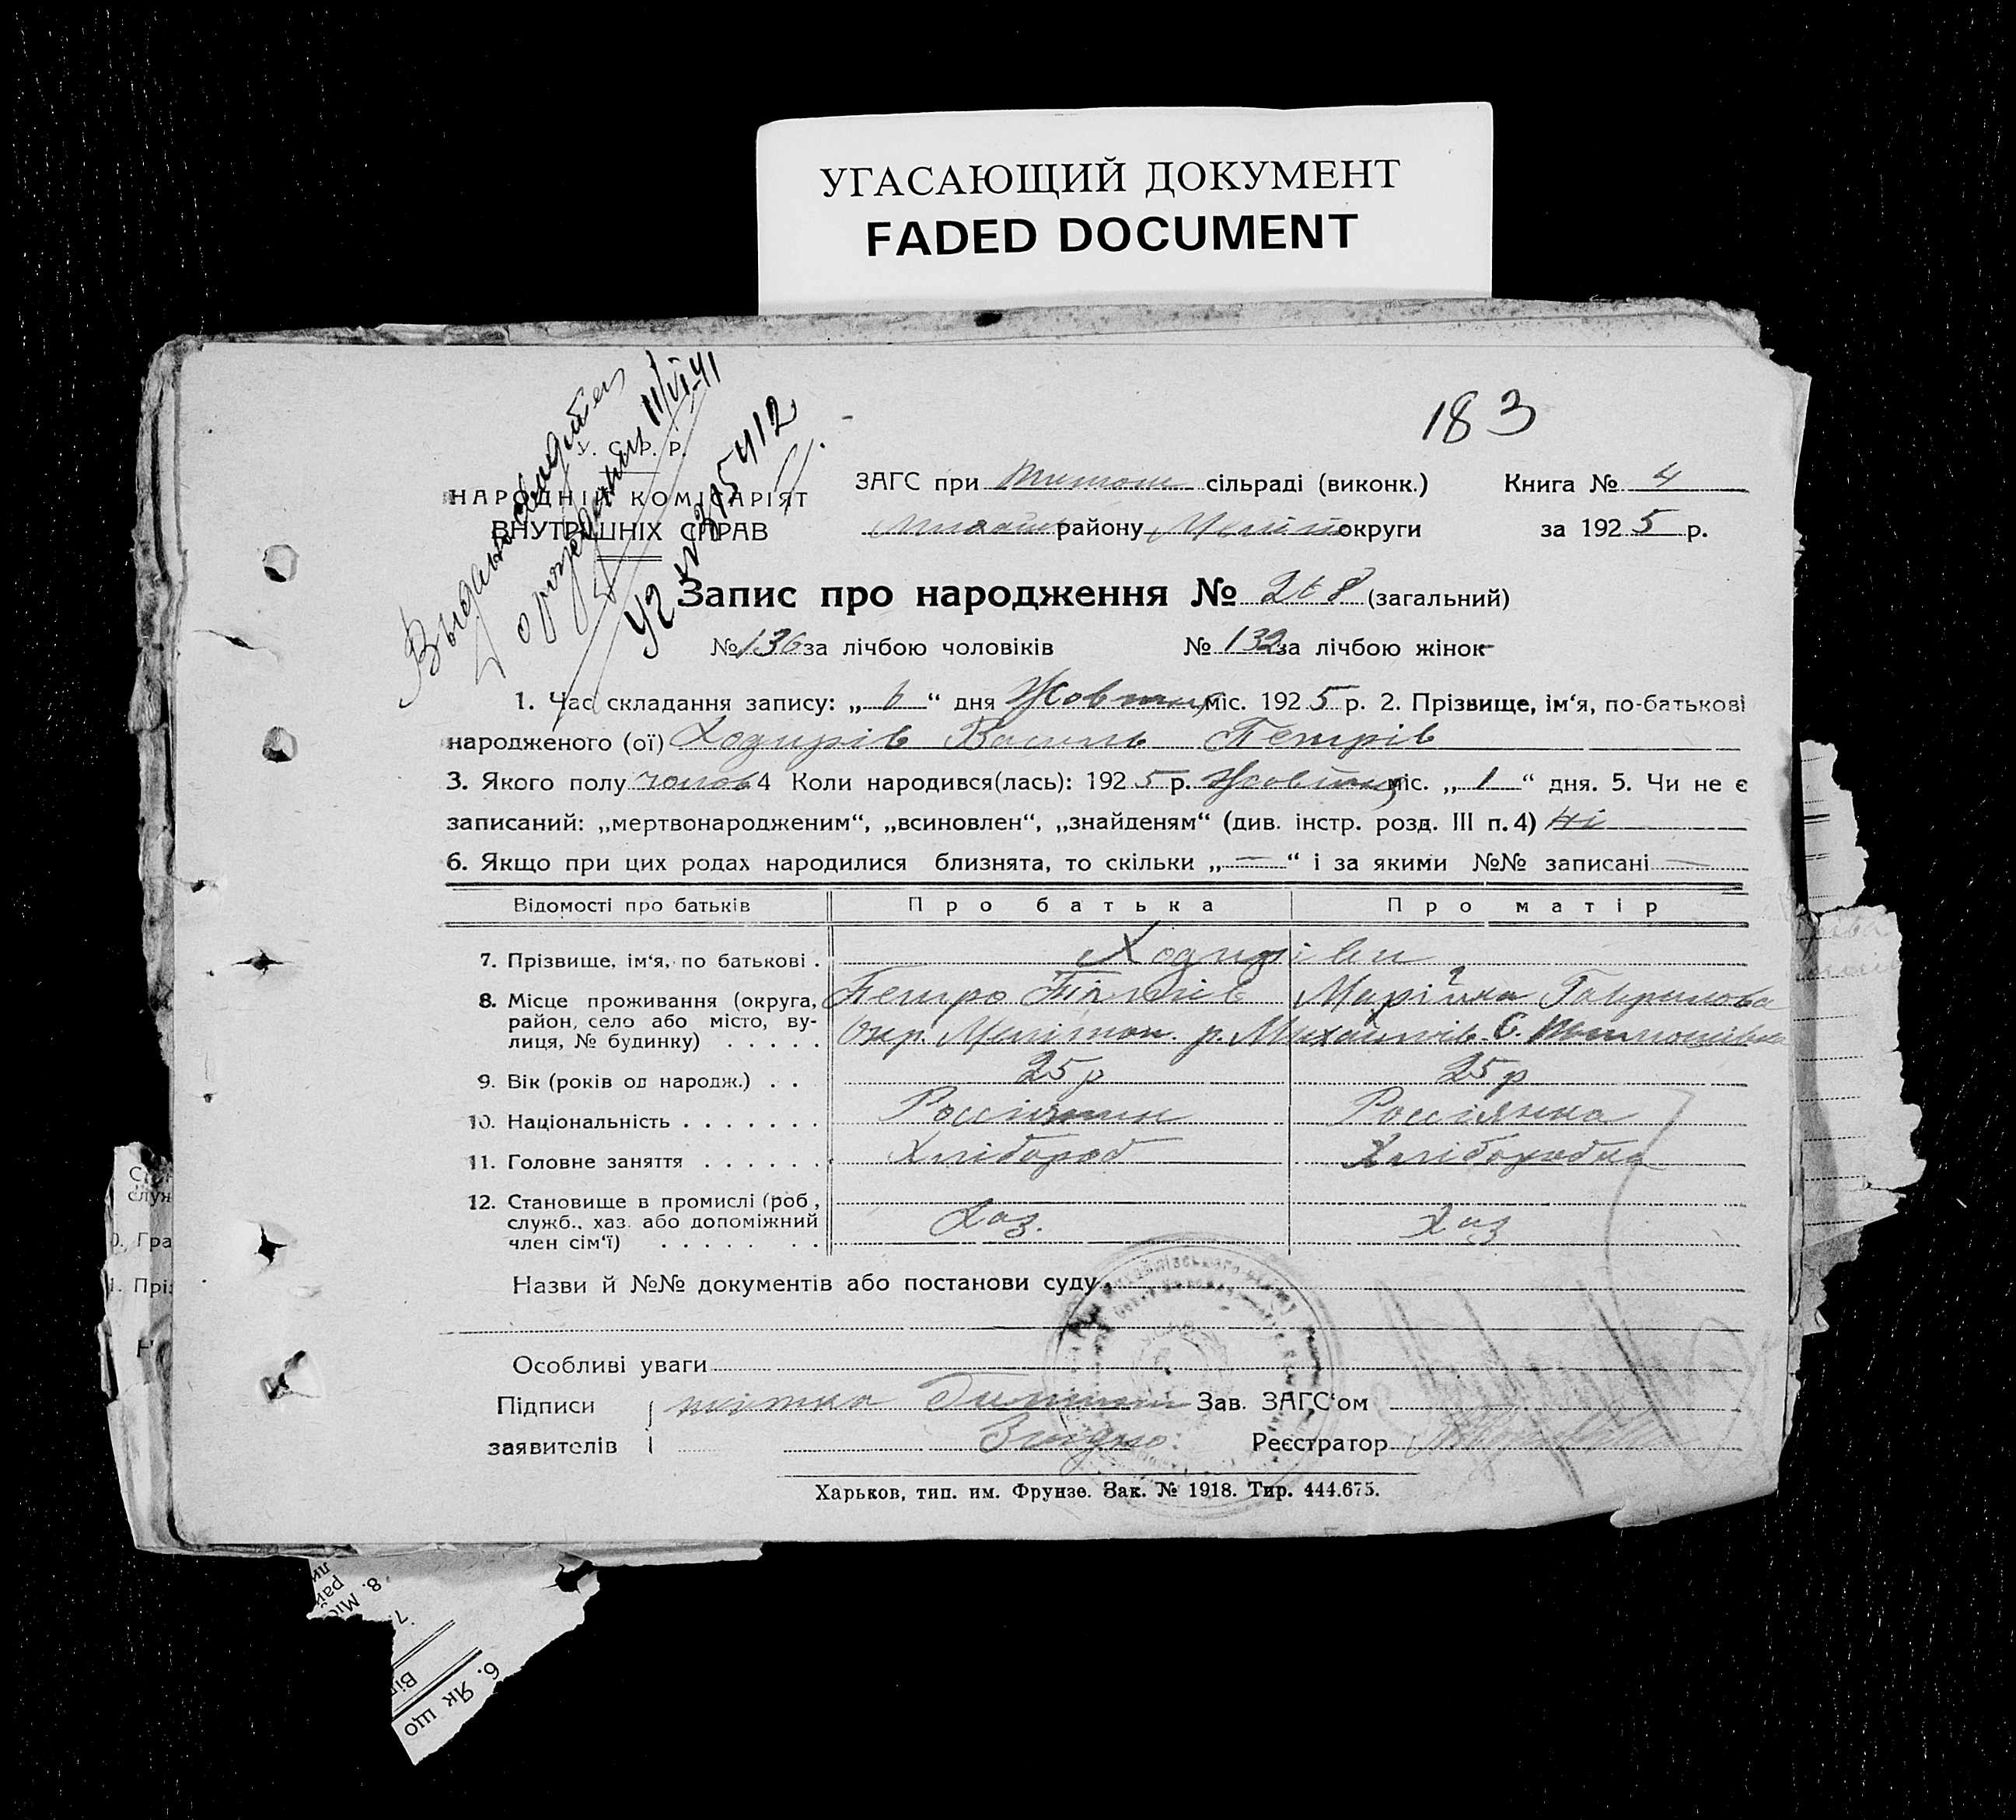 УГАСАЮЩИЙ ДОКУМЕНТ
FADED DOCUMENT
183
У. С. Р. Р.
НАРОДНІЙ КОМІТАРІЯТ
ВНУТРІШНІХ СПРАВ
11/VI-41
ЗАГС при сільраді (виконк.) Книга № 4
району округи за 1925 р.
Запис про народження № 268 (загальний)
№ 136 за лічбою чоловіків № 132 за лічбою жінок
1. Час складання запису: „ 6 “ дня Жовтня міс. 1925 р. 2. Прізвище, ім‘я, по-батькові
народженого (ої) Ходирів Василь Петрів
3. Якого полу чолов 4 Коли народився(лась): 1925 р. Жовтня міс. „ 1 “ дня. 5. Чи не є
записаний: „мертвонародженим“, „всиновлен“, „знайденям“ (див. інстр. розд. III п. 4) Ні
6. Якщо при цих родах народилися близнята, то скільки „ — “ і за якими №№ записані —
Відомості про батьків Про батька Про матір
7. Прізвище, ім‘я, по батькові . Ходиріви
8. Місце проживання (округа, Петро Марійка Гаврилова
район, село або місто, ву-
лиця, № будинку) . . . . . Окр. Мелітоп. р. Михайлів. С. Тимошівка
9. Вік (років од народж.) . . 25 р 25 р
10. Національність . . . . . . . Россіянин Россіянка
11. Головне заняття . . . . . . Хлібороб Хліборобка
12. Становище в промислі (роб.,
служб., хаз. або допоміжний Хаз. Хаз
член сім‘ї) . . . . . . .
Назви й №№ документів або постанови суду
Особливі уваги
Підписи Зав. ЗАГС‘ом
заявителів Згідно: Реєстратор
Харьков, тип. им. Фрунзе. Зак. № 1918. Тир. 444.675.